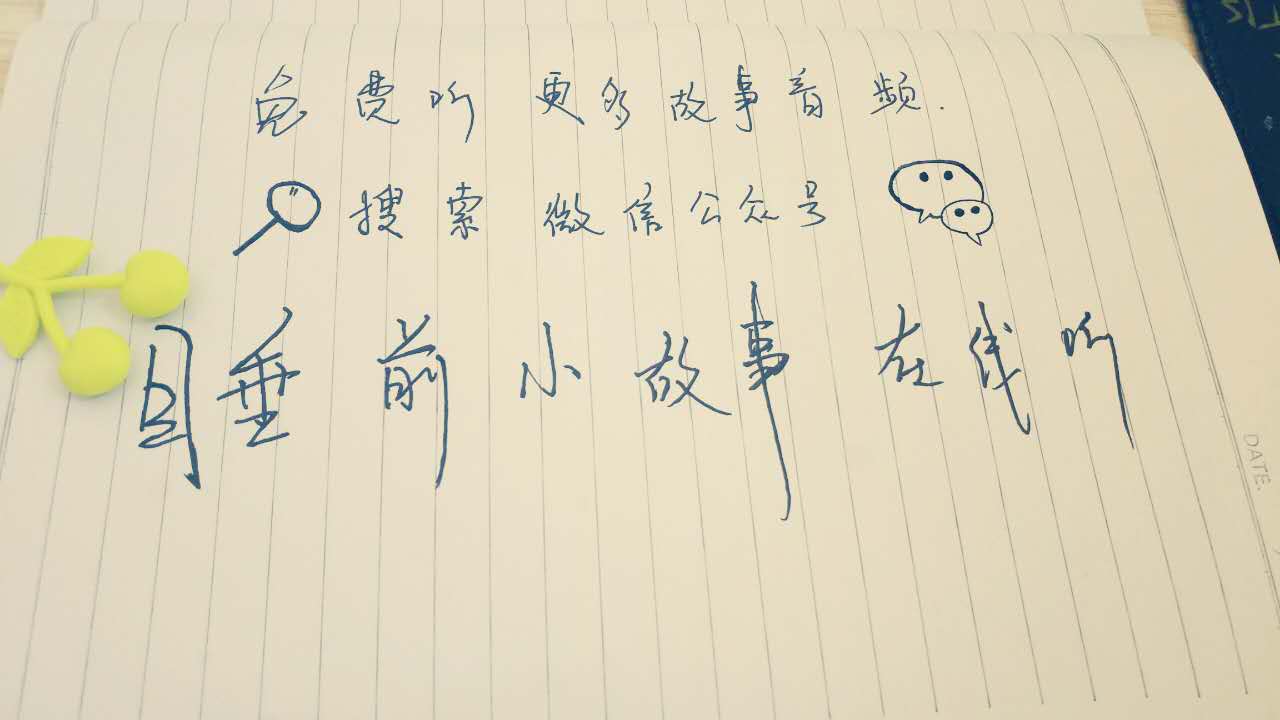 免费听更多故事音频.
搜索微信公众号
睡前小故事在线听
DATE.